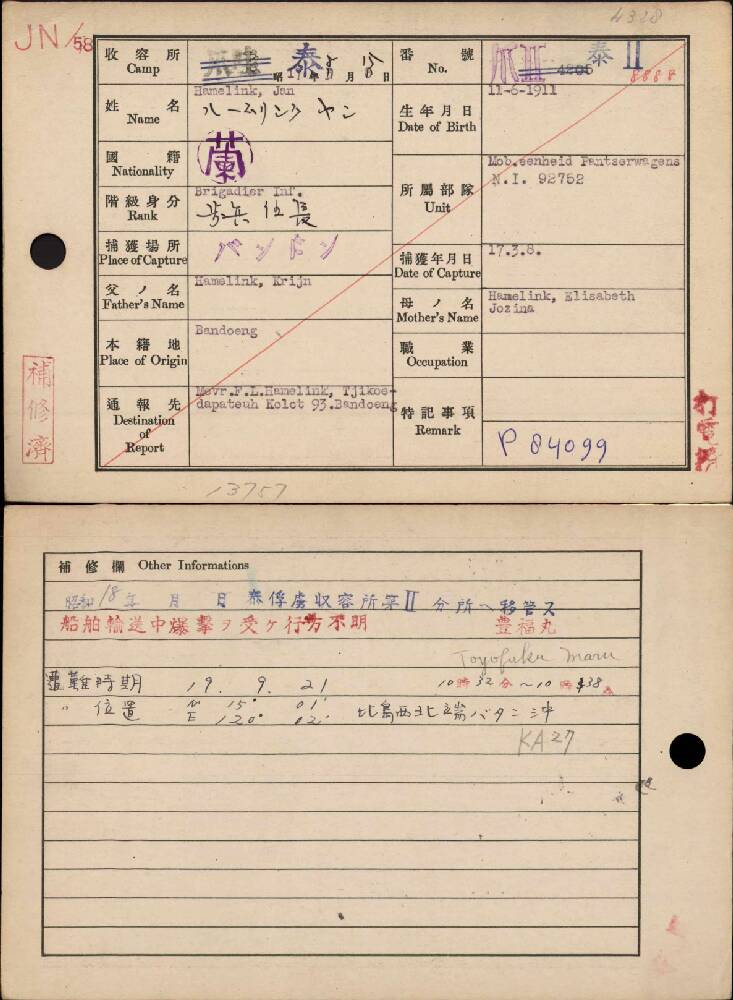 4328
JN/58
收容所 Camp 泰 昭 年 月 日
番號 No. 爪Ⅲ 4205 泰Ⅱ 8888
姓名 Name Hamelink, Jan
ハームリンク ヤン
生年月日 Date of Birth 11-6-1911
國籍 Nationality 蘭
所屬部隊 Unit Mob.eenheid Pantserwagens
N.I. 92752
階級身分 Rank Brigadier Inf.
歩兵伍長
捕獲場所 Place of Capture バンドン
捕獲年月日 Date of Capture 17.3.8.
父ノ名 Father's Name Hamelink, Krijn
母ノ名 Mother's Name Hamelink, Elisabeth
Jozina
本籍地 Place of Origin Bandoeng
職業 Occupation
通報先 Destination of Report Mevr.F.L.Hamelink, Tjikoe-
dapateuh Kolct 93.Bandoeng
特記事項 Remark P 84099
補修濟
13757
補修欄 Other Informations
昭和18年 月 日 泰俘虜収容所第Ⅱ分所ヘ移管ス
船舶輸送中爆撃ヲ受ケ行方不明 豊福丸
Toyofuku Maru
遭難時期 19. 9. 21 10時32分~10時38分
〃 位置 N 15° 01' E 120° 02' 比島西北端バタン沖
KA27